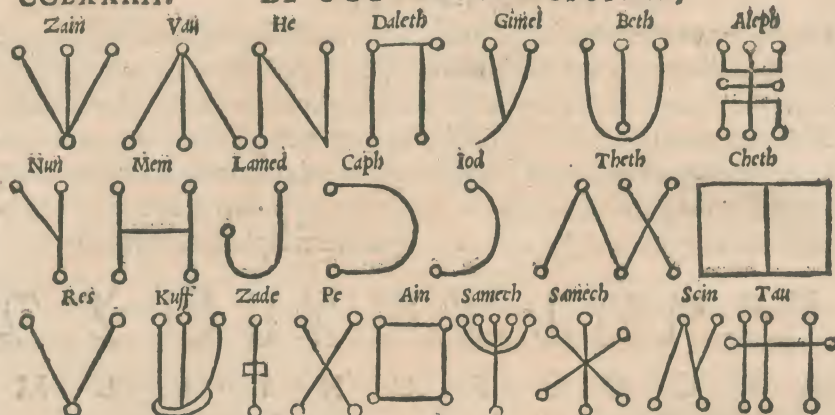 Zain Vau He Daleth Gimel Beth Aleph
Nun Mem Lamed Caph Iod Theth Cheth
Res Kuff Zade Pe Ain Samech Samech Scin Tau